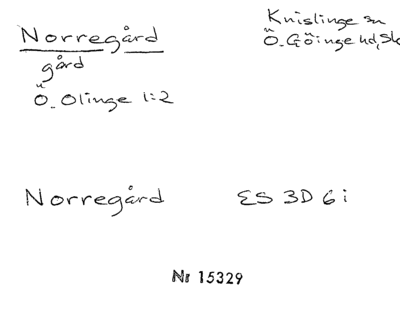 Norregård
gård
Ö. Olinge 1:2
Knislinge sn
Ö. Göinge hd, Sk
Norregård
ES 3D 6 i
Nr 15329